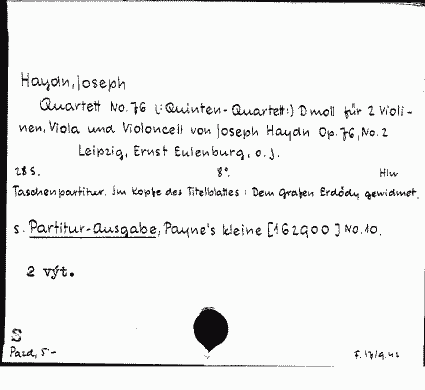 Haydn, Joseph
Quartett No. 76 (:Quinten-Quartett:) D moll für 2 Violi-
nen, Viola und Violoncell von Joseph Haydn Op. 76, No. 2
Leipzig, Ernst Eulenburg, o. J.
28 S. 8°. Hlw
Taschenpartitur. Im Kopfe des Titelblattes: Dem Grafen Erdödy gewidmet.
s. Partitur-Ausgabe, Payne's kleine [162900] No. 10.
2 výt.
S
Pazd, 5-
F. 17/9.42